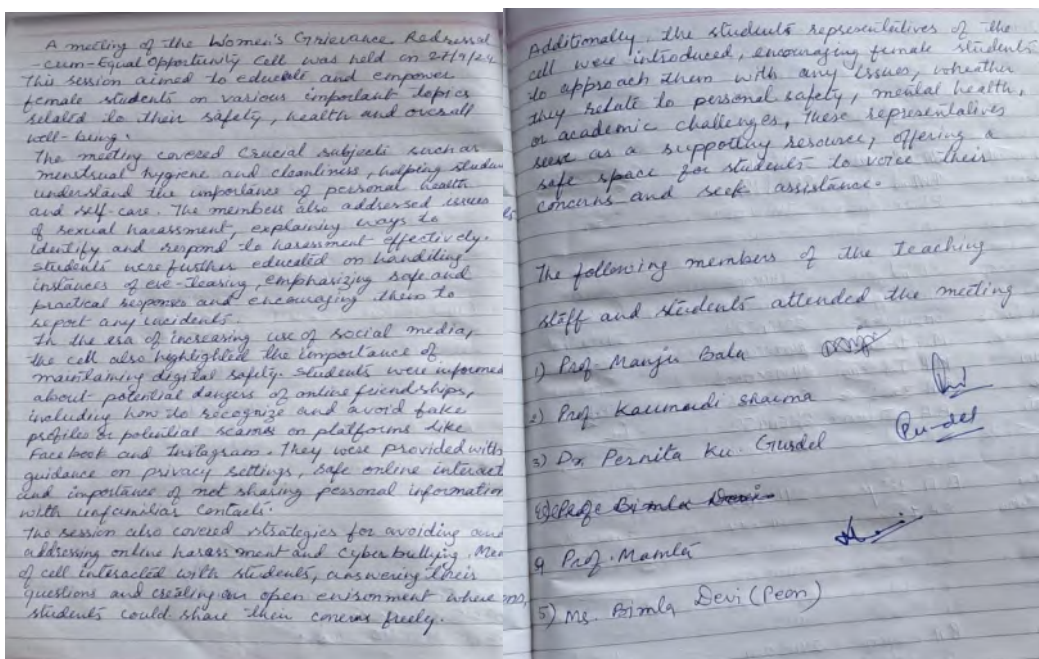 A meeting of the Women's Grievance Redressal
-cum-Equal Opportunity cell was held on 27/9/24
This session aimed to educate and empower
female students on various important topics
related to their safety, health and overall
well-being.
The meeting covered crucial subjects such as
menstrual hygiene and cleanliness, helping studen
understand the importance of personal health
and self-care. The members also addressed issues
of sexual harassment, explaining ways to
identify and respond to harassment effectively.
students were further educated on handling
instances of eve-teasing, emphasizing safe and
practical responses and encouraging them to
report any incidents.
In the era of increasing use of social media,
the cell also highlighted the importance of
maintaining digital safety. Students were informed
about potential dangers of online friendships,
including how to recognize and avoid fake
profiles or potential scams on platforms like
Facebook and Instagram. They were provided with
guidance on privacy settings, safe online interact
and importance of not sharing personal information
with unfamiliar contacts.
The session also covered strategies for avoiding and
addressing online harassment and cyberbullying. Mem
of cell interacted with students, answering their
questions and creating an open environment where
students could share their concerns freely.
Additionally, the students representatives of the
cell were introduced, encouraging female students
to approach them with any issues, wheather
they relate to personal safety, mental health,
or academic challenges, These representatives
serve as a supporting resource, offering a
safe space for students to voice their
concerns and seek assistance.
The following members of the teaching
staff and students attended the meeting
1) Prof. Manju Bala
2) Prof. Kaumudi Sharma
3) Dr. Pernita Ku. Gusdel
Bimla Devi
4 Prof. Mamla
5) Ms. Bimla Devi (Peon)